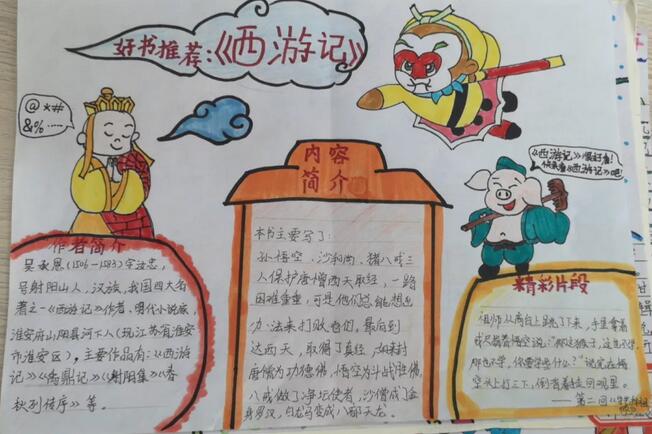 好书推荐:《西游记》
@ * #
& % ……
作者简介
吴承恩(1506-1583)字汝忠,
号射阳山人,汉族,我国四大名
著之一《西游记》作者,明代小说家,
淮安府山阳县河下人(现江苏省淮安
市淮安区),主要作品有:《西游
记》《禹鼎记》《射阳集》《春
秋列传序》等。
内容
简介
本书主要写了:
孙悟空、沙和尚、猪八戒三
人保护唐僧西天取经,一路
困难重重,可是他们总能想出
办法来打败它们,最后到
达西天,取得了真经,如来封
唐僧为功德佛,悟空为斗战胜佛,
八戒做了净坛使者,沙僧成了金
身罗汉,白龙马变成八部天龙。
《西游记》很好看!
快来看《西游记》吧!
精彩片段
祖师从高台上跳了下来,手里拿着
戒尺指着悟空说:“你这猴子,这也不学,
那也不学,你要学些什么?”说完在悟
空头上打三下,倒背着手走回洞里。
——第二回